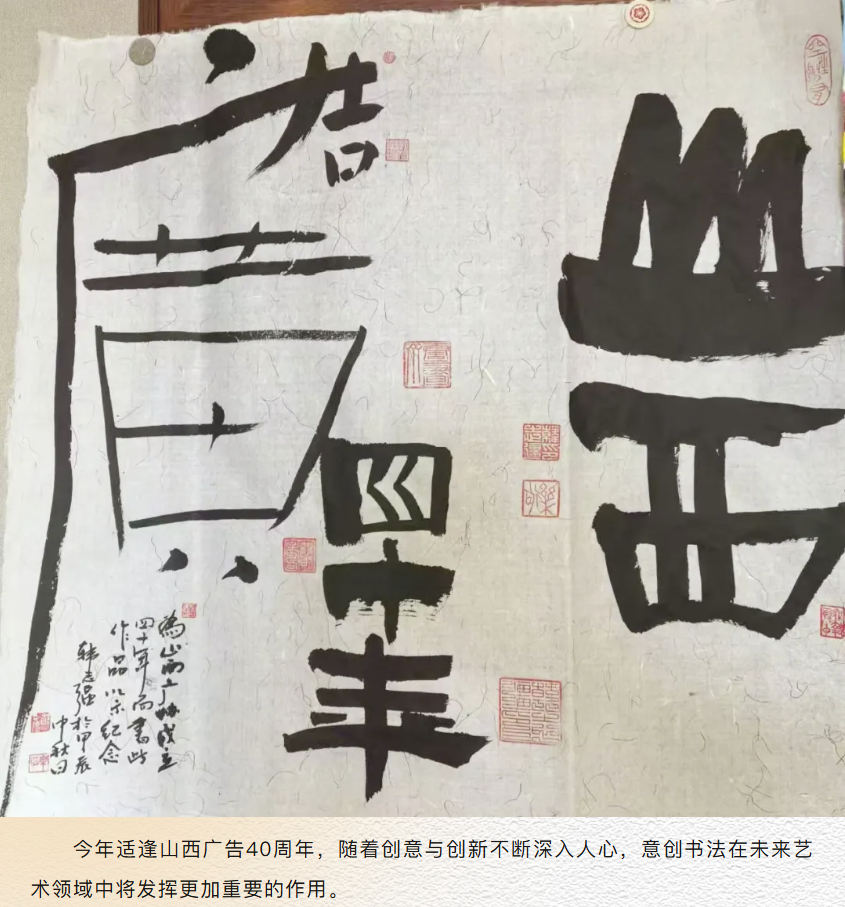 山西
廣告
四十年
為山西广协成立
四十年而書此
作品以示纪念
韩志强於甲辰
中秋日
今年适逢山西广告40周年，随着创意与创新不断深入人心，意创书法在未来艺
术领域中将发挥更加重要的作用。